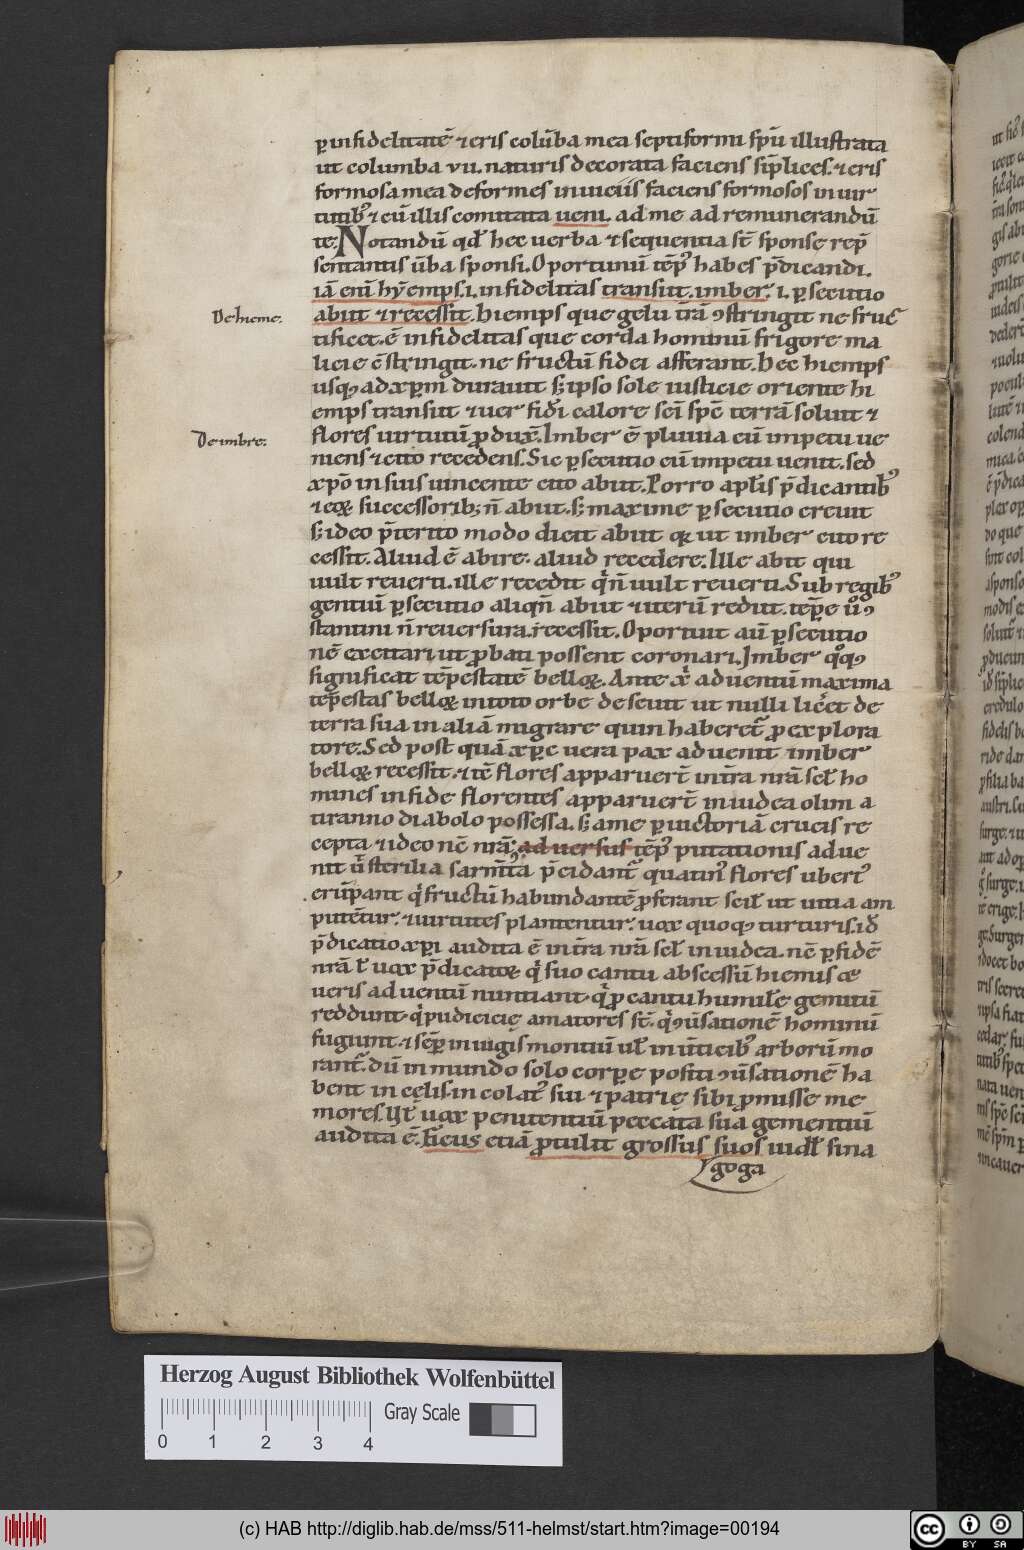 ꝑ infidelitatē ⁊ eris colūba mea septiformi spū illustrata
ut columba vii. naturis decorata faciens sīplices. ⁊ eris
formosa mea deformes in uiciis faciens formosos in uir
tutibꝰ ⁊ cū illis comitata ueni. ad me ad remunerandū
te. Notandū qđ hec uerba ⁊ sequentia st̄ sponse rep̄
sentantis ūba sponsi. Oportunū tēpꝰ habes p̄dicandi.
iā eni hyemps. i. infidelitas transiit. imber. i. ꝑsecutio
De hieme.
abiit ⁊ recessit. Hiemps que gelu t̄rā ꝯstringit ne fruc
tificet. ē infidelitas que corda hominū frigore ma
licie c̄stringit. ne fructū fidei afferant. Hec hiemps
usqꝫ ad xp̄m durauit sꝫ ipso sole iusticie oriente hi
emps transiit ⁊ uer fidi calore sc̄i spc̄ terrā soluit ⁊
De imbre.
flores uirtutū ꝓduxit. Imber ē pluuia cū impetu ue
niens ⁊ cito recedens. Sic ꝑsecutio cū impetu uenit. sed
xp̄o in suis uincente cito abiit. Porro aplis p̄dicantibꝰ
⁊ eoꝝ successoribꝫ n̄ abiit. sꝫ maxime ꝑsecutio creuit
sꝫ ideo p̄terito modo dicit abiit qꝛ ut imber cito re
cessit. Aliud ē abire. aliud recedere. Ille abit qui
uult reuerti. ille recedit q̄ n̄ uult reuerti. Sub regibꝰ
gentiū ꝑsecutio aliqn̄ abiit ⁊ iterū rediit. tēpe ūo ꝯ
stantini n̄ reuersura. recessit. Oportuit aū ꝑsecutio
nē excitari ut ꝓbati possent coronari. Imber qͦqꝫ
significat tēpestatē belloꝝ. Ante xp̄i aduentū maxima
tēpestas belloꝝ in toto orbe deseuit ut nulli liceret de
terra sua in aliā migrare quin haberet̄ ꝓ explora
tore. Sed postquā xp̄c uera pax aduenit imber
belloꝝ recessit. ⁊ tē flores apparuert̄ in t̄ra nr̄a scl̄ ho
mines in fide florentes apparuert̄ in iudea olim a
tiranno diabolo possessa. sꝫ a me ꝑ uictoriā crucis re
cepta ⁊ ideo nc̄ nr̄a. ad uersus tēpꝰ putationis adue
nit ū sterilia sarm̄ta p̄cidant̄ quatinꝰ flores ubertꝰ
erūpant q̄ fructū habundantē ꝓferant scil. ut uitia am
putētur. ⁊ uirtutes plantentur. uox quoqꝫ turturis. id
p̄dicatio xp̄i audita ē in t̄ra nr̄a scl̄ in iudea. nē ꝑfidē
nr̄ā l̄ uox p̄dicatoꝝ q̄ suo cantu abscessū hiemis ⁊
ueris aduentū nuntiant. q̄ ꝓ cantu humile gemitū
reddunt. q̄ pudicicię amatores st̄. q̄ ꝯūsationē hominū
fugiunt. ⁊ sēꝑ in iugis montiū ul̄ in ūticibꝰ arborū mo
rant̄. dū in mundo solo corꝑe positi ꝯūsationē ha
bent in celis. incolatꝰ sui ⁊ patrię sibi ꝓmisse me
mores. Ul̄ uox penitentiū peccata sua gementiū
audita ē. ficus etiā ꝓtulit grossus suos uidl̄ sina
goga
Herzog August Bibliothek Wolfenbüttel
Gray Scale
0 1 2 3 4
(c) HAB http://diglib.hab.de/mss/511-helmst/start.htm?image=00194
cc BY SA